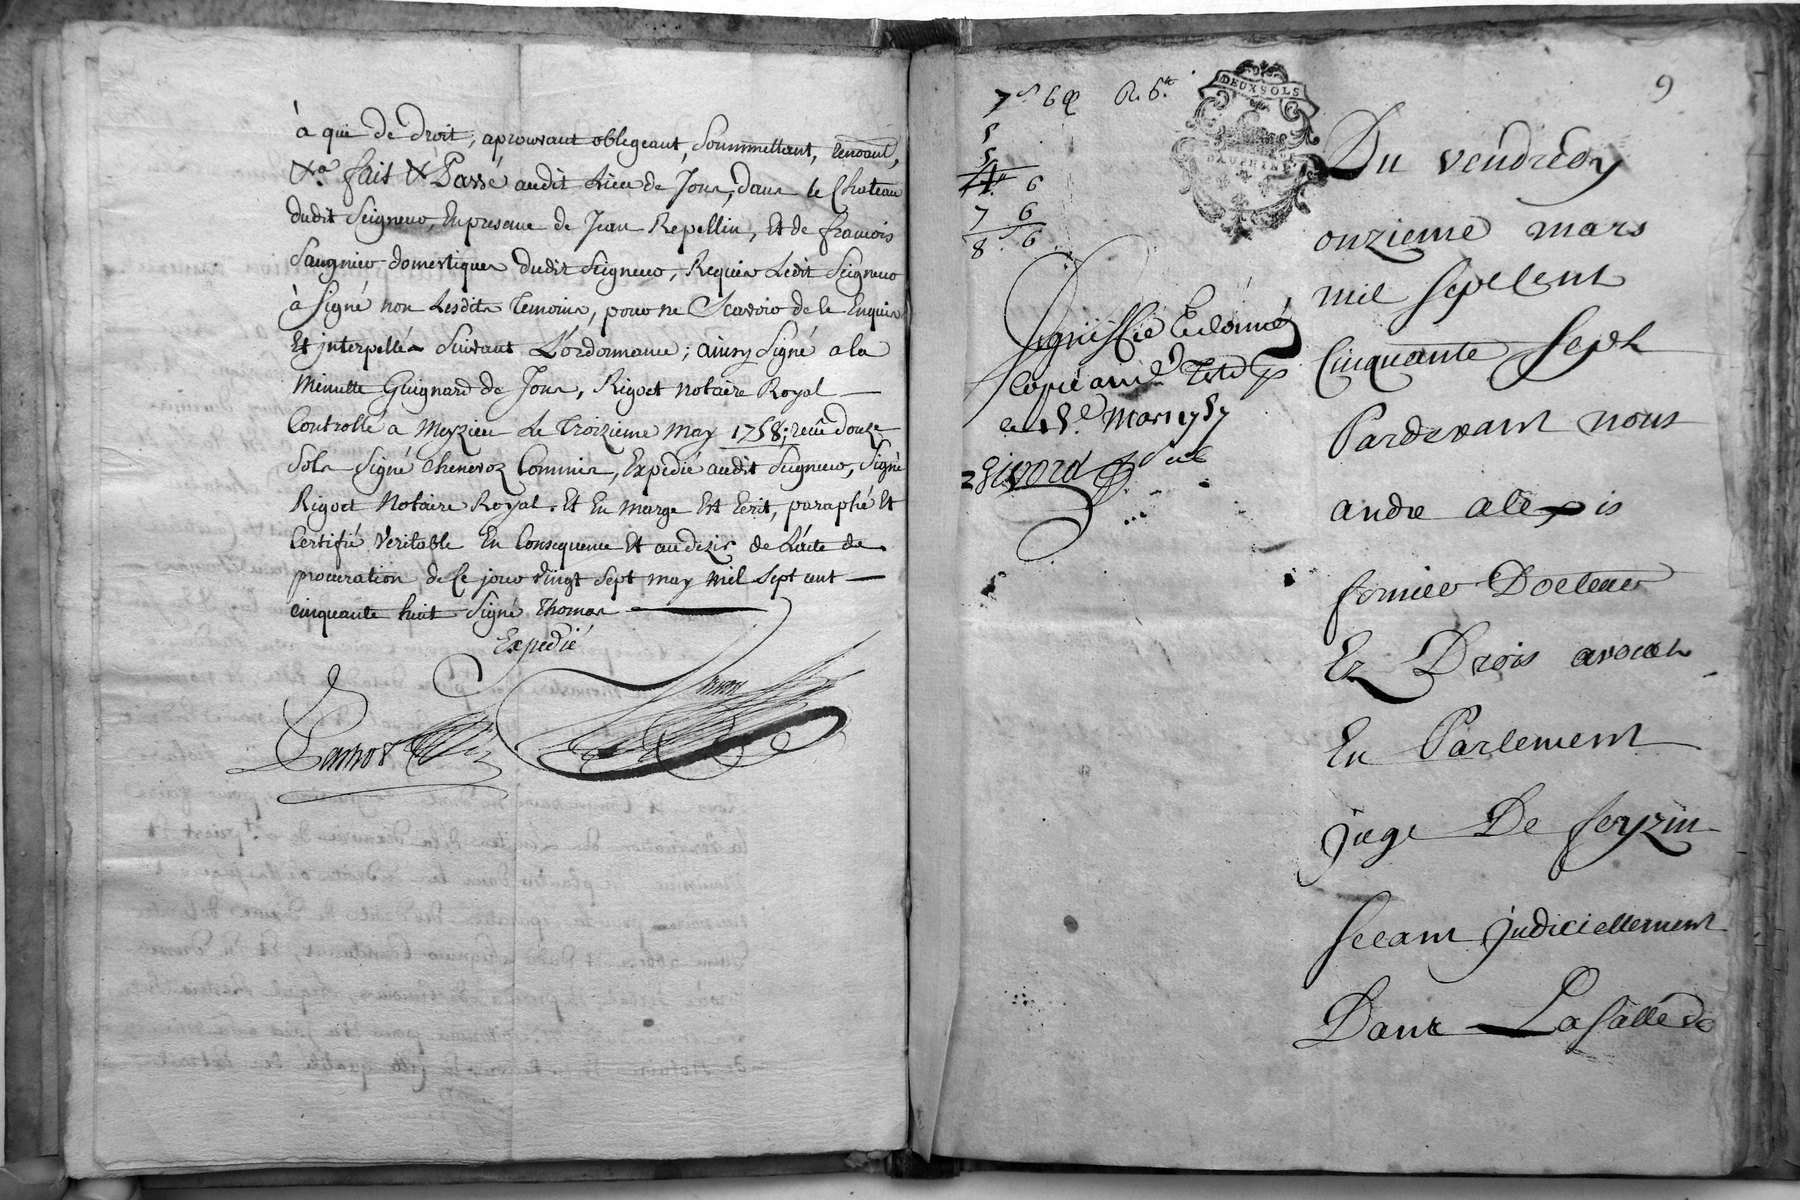 à qui de droit, aprouvant obligeant, Soummettant, renoant,
&.a fait & Passé audit Lieu de Jons, dans le Chateau
dudit Seigneur, En presence de Jean Repellin, Et de françois
Saugnieu domestiques dudit Seigneur, Requis Ledit Seigneur
à Signé non Lesdits Temoins, pour ne Scavoir de le Enquis
Et interpellés Suivant L'ordonnance; ainsy Signé a la
Minutte Guignard de Jons, Rigoet Notaire Royal
Controllé a Meyzieu Le Troizieme May 1758; reçu douze
Sols Signé Chenevoz Commis, Expedié audit Seigneur, Signé
Rigoet Notaire Royal. Et En Marge Est Ecrit, paraphé Et
Certifié Veritable En Consequence Et au dezir de L'acte de
procuration de Ce jour Vingt Sept may Mil Sept cent
cinquante huit Signé Thomas
Expedié
9
7 6
6
7 6
8 6
DEUX SOLS
DAUPHINÉ
Signiffié Et donné
Copie a
le 15.e Mars 1757
Du vendredy
onzieme mars
mil Sept Cent
Cinquante Sept
Pardevant nous
andre alexis
fornier Docteur
Ez Drois avocat
En Parlement
juge De feyzin
Seeant judiciellement
Dans La Salle de